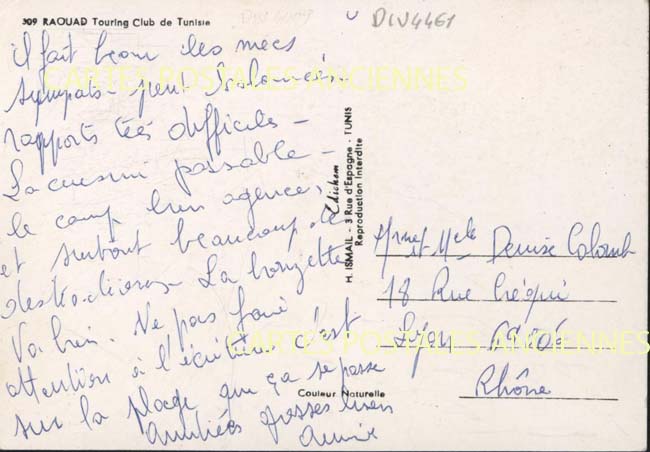 309 RAOUAD Touring Club de Tunisie
DIV4461
il fait beau les mecs
sympats - peut
rapports très difficiles -
La cuisini passable -
le camp bien agencés,
et surtout beaucoup de
La bouzette
Va bien. Ne pas faire
attention à l'écriture c'est
sur la plage que ça se passe
Amitiés grosses bises
Annie
H. ISMAIL - 3 Rue d'Espagne - TUNIS
Reproduction Interdite
Edichem
Couleur Naturelle
Mme et Mele Denise Colomb
18 Rue Créqui
Lyon
Rhône
CARTES POSTALES ANCIENNES
CARTES POSTALES ANCIENNES